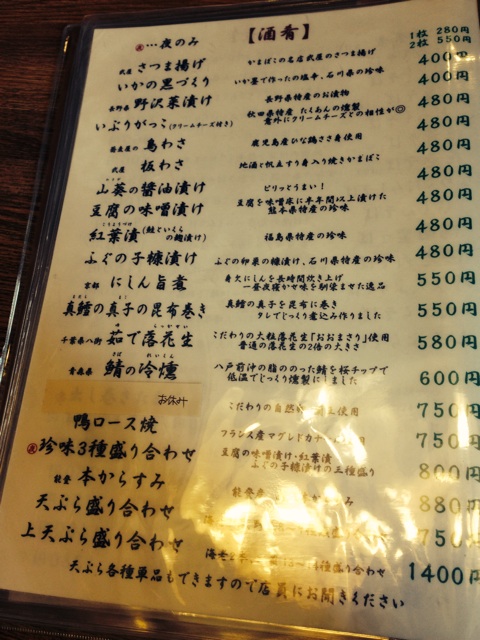 夜…夜のみ 【酒肴】
武蔵 さつま揚げ かまぼこの名店武蔵のさつま揚げ 1枚 280円 2枚 550円
いかの黒づくり いか墨で作ったの塩辛、石川県の珍味 400円
長野県 野沢菜漬け 長野県特産のお漬物 400円
いぶりがっこ(クリームチーズ付き) 秋田県特産 たくあんの燻製 意外にクリームチーズとの相性が◎ 480円
蕎麦屋の 鳥わさ 鹿児島産ひな鶏ささ身使用 480円
武蔵 板わさ 地酒と帆立すり身入り焼きかまぼこ 480円
山葵の醤油漬け ピリッとうまい! 480円
豆腐の味噌漬け 豆腐を味噌床に半年間以上漬けた 熊本県特産の珍味 480円
紅葉漬(鮭といくらの麹漬け) 福島県特産の珍味 480円
ふぐの子糠漬け ふぐの卵巣の糠漬け、石川県特産の珍味 480円
京都 にしん旨煮 身欠にしんを長時間炊き上げ 一昼夜寝かせ味を馴染ませた逸品 550円
真鱈の真子の昆布巻き 真鱈の真子を昆布に巻き タレでじっくり煮込み作りました 550円
千葉県八街 茹で落花生 こだわりの大粒落花生「おおまさり」使用 普通の落花生の2倍の大きさ 580円
青森県 鯖の冷燻 八戸前沖の脂ののった鯖を桜チップで 低温でじっくり燻製にしました 600円
お休み こだわりの自然 使用 750円
鴨ロース焼 フランス産マグレドカナール使用 750円
夜 珍味3種盛り合わせ 豆腐の味噌漬け・紅葉漬 ふぐの子糠漬けの三種盛り 800円
能登 本からすみ 能登産 み 880円
天ぷら盛り合わせ 750円
上天ぷら盛り合わせ 海老 盛り合わせ 1400円
天ぷら各種単品もできますので店員にお聞きください